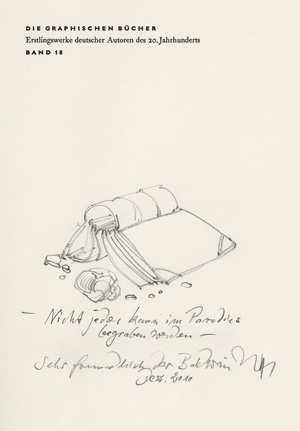 DIE GRAPHISCHEN BÜCHER
Erstlingswerke deutscher Autoren des 20. Jahrhunderts
BAND 18
— Nicht jeder kann im Paradies
begraben werden —
Sehr freundlich der
2010